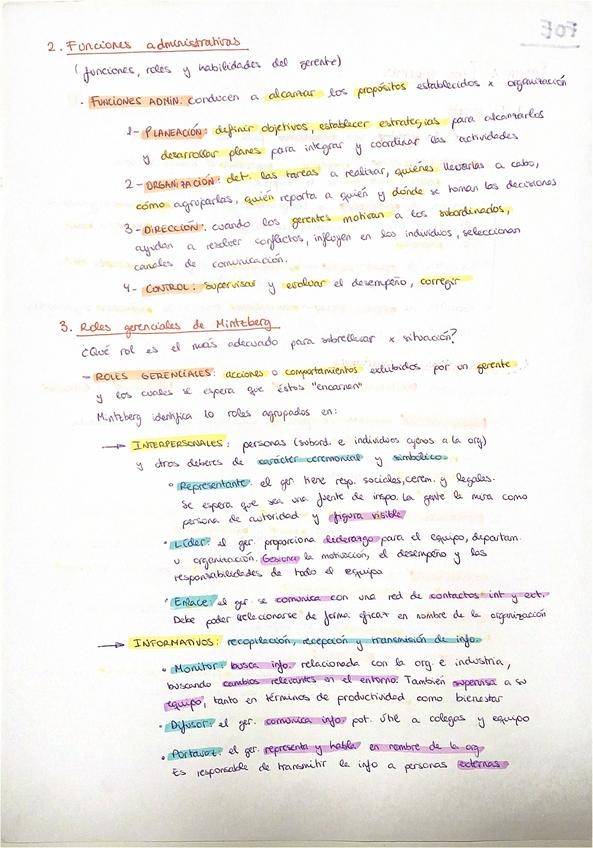 FOE
2. Funciones administrativas
(funciones, roles y habilidades del gerente)
· FUNCIONES ADMIN: conducen a alcanzar los propósitos establecidos x organización
1- PLANEACIÓN: definir objetivos, establecer estrategias para alcanzarlos
y desarrollar planes para integrar y coordinar las actividades
2- ORGANIZACIÓN: det. las tareas a realizar, quiénes llevarlas a cabo,
cómo agruparlas, quién reporta a quién y dónde se toman las decisiones
3- DIRECCIÓN: cuando los gerentes motivan a los subordinados,
ayudan a resolver conflictos, influyen en los individuos, seleccionan
canales de comunicación.
4- CONTROL: supervisar y evaluar el desempeño, corregir
3. Roles gerenciales de Mintzberg
¿Qué rol es el más adecuado para sobrellevar x situación?
- ROLES GERENCIALES: acciones o comportamientos exhibidos por un gerente
y los cuales se espera que éstos "encarnen"
Mintzberg identifica 10 roles agrupados en:
→ INTERPERSONALES: personas (subord. e individuos ajenos a la org)
y otros deberes de carácter ceremonial y simbólico.
• Representante: el ger tiene resp. sociales, cerem. y legales.
Se espera que sea una fuente de inspo. La gente la mira como
persona de autoridad y figura visible
• Líder: el ger. proporciona liderazgo para el equipo, departam.
u organización. Gesiona la motivación, el desempeño y las
responsabilidades de todo el equipo
• Enlace: el ger se comunica con una red de contactos int y ext.
Debe poder relacionarse de forma eficaz en nombre de la organización
→ INFORMATIVOS: recopilación, recepción y transmisión de info.
• Monitor: busca info. relacionada con la org. e industria,
buscando cambios relevantes en el entorno. También supervisa a su
equipo, tanto en términos de productividad como bienestar
• Difusor: el ger. comunica info. pot. útil a colegas y equipo
• Portavoz: el ger. representa y habla en nombre de la org
Es responsable de transmitir la info a personas externas